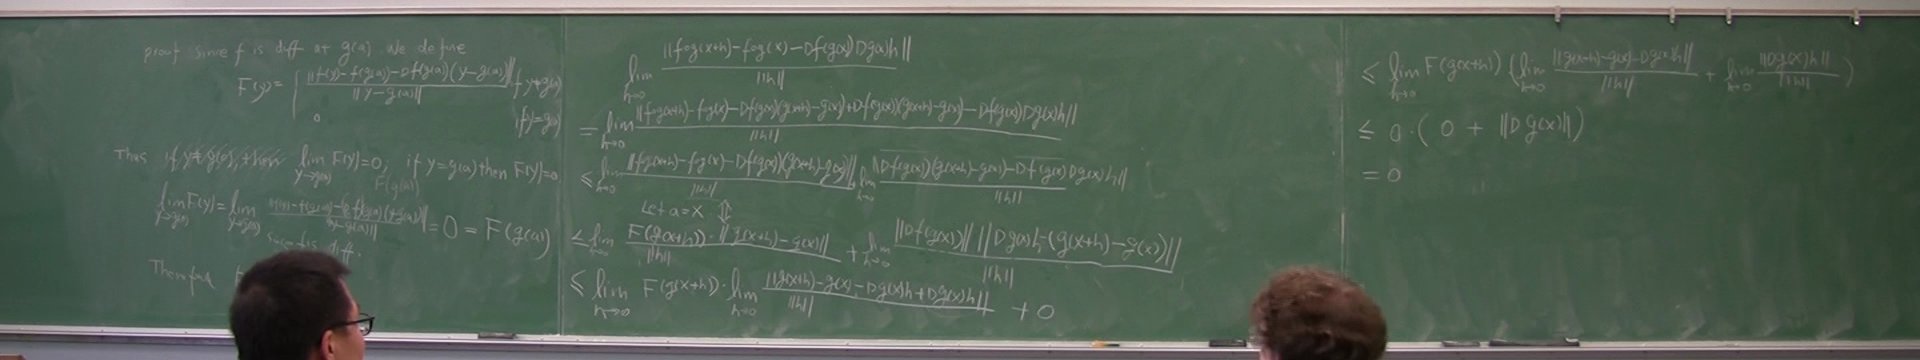 proof: since f is diff at g(a). We define
F(y) = { ||f(y)-f(g(a))-Df(g(a))(y-g(a))|| / ||y-g(a)|| if y≠g(a)
0 if y=g(a)
Thus if y≠g(a), then lim y→g(a) F(y)=0, if y=g(a) then F(y)=0
F(g(a))
lim y→g(a) F(y) = lim y→g(a) ||f(y)-f(g(a))-Df(g(a))(y-g(a))|| / ||y-g(a)|| = 0 = F(g(a))
since f is diff.
Therefore
lim h→0 ||f∘g(x+h)-f∘g(x)-Df(g(x))Dg(x)h|| / ||h||
= lim h→0 ||f∘g(x+h)-f∘g(x)-Df(g(x))(g(x+h)-g(x))+Df(g(x))(g(x+h)-g(x))-Df(g(x))Dg(x)h|| / ||h||
≤ lim h→0 ||f∘g(x+h)-f∘g(x)-Df(g(x))(g(x+h)-g(x))|| / ||h|| + lim h→0 ||Df(g(x))(g(x+h)-g(x))-Df(g(x))Dg(x)h|| / ||h||
Let a=x ⇕
≤ lim h→0 F(g(x+h))·||g(x+h)-g(x)|| / ||h|| + lim h→0 ||Df(g(x))|| ||Dg(x)h-(g(x+h)-g(x))|| / ||h||
≤ lim h→0 F(g(x+h))· lim h→0 ||g(x+h)-g(x)-Dg(x)h+Dg(x)h|| / ||h|| + 0
≤ lim h→0 F(g(x+h)) (lim h→0 ||g(x+h)-g(x)-Dg(x)h|| / ||h|| + lim h→0 ||Dg(x)h|| / ||h||)
≤ 0·(0 + ||Dg(x)||)
= 0